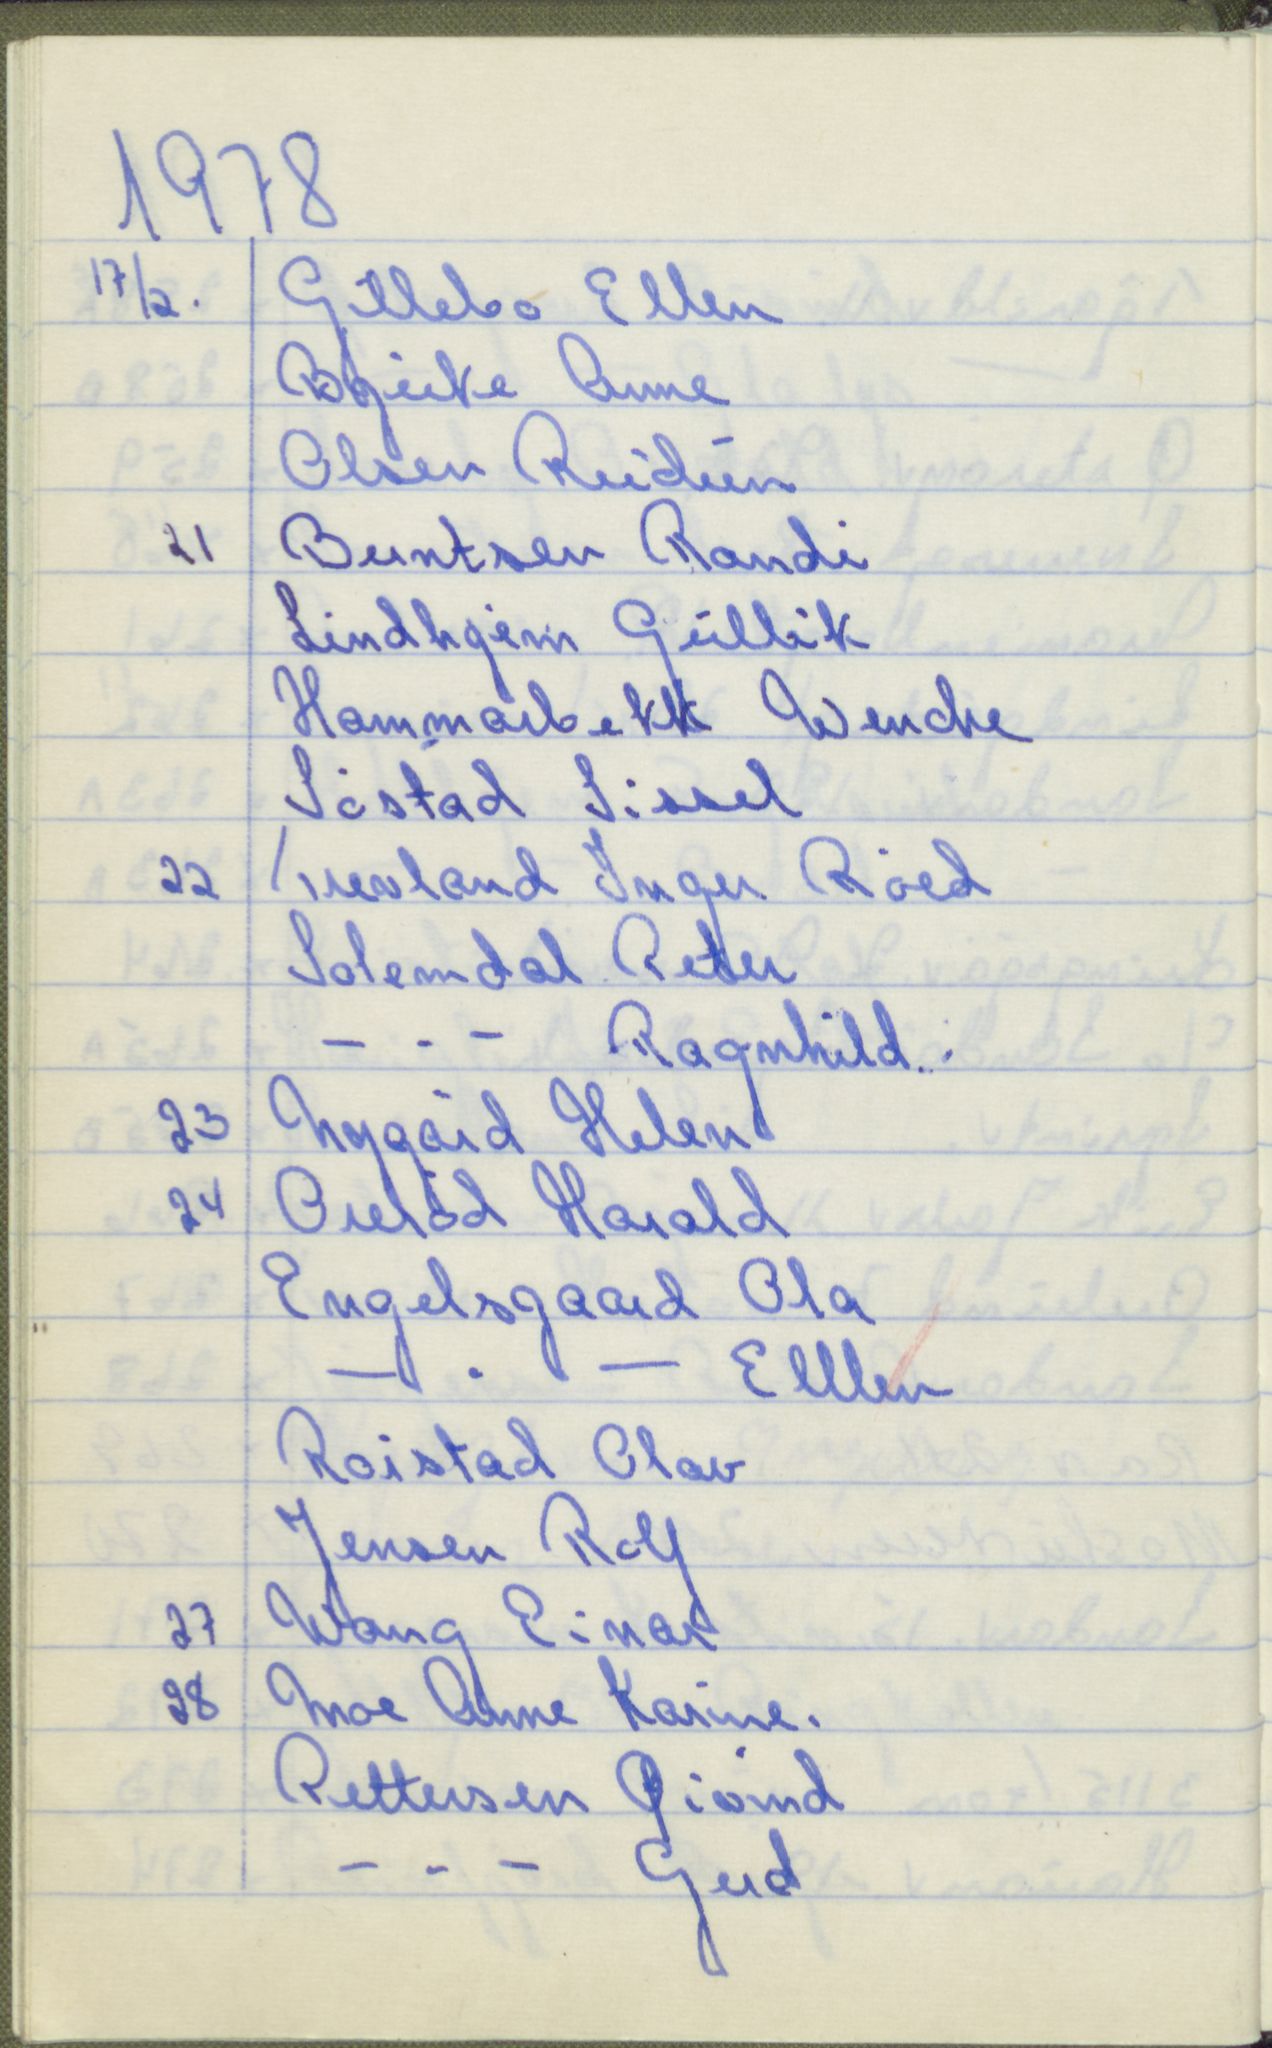 1978
17/2. Gillebo Ellen
Bjerke Anne
Olsen Reidun
21 Berntsen Randi
Lindhjem Gullik
Hammarbekk Wenche
Sòstad Sissel
22 Inger Röed
Solemdal Peter
- - - Ragnhild.
23 Nygård Helen
24 Harald
Engelsgaard Ola
— . — Elllen
Roistad Olav
Jensen Rolf
27 Wang Einar
28 Moe Anne Karine.
Pettersen Öivind
- - - Gerd